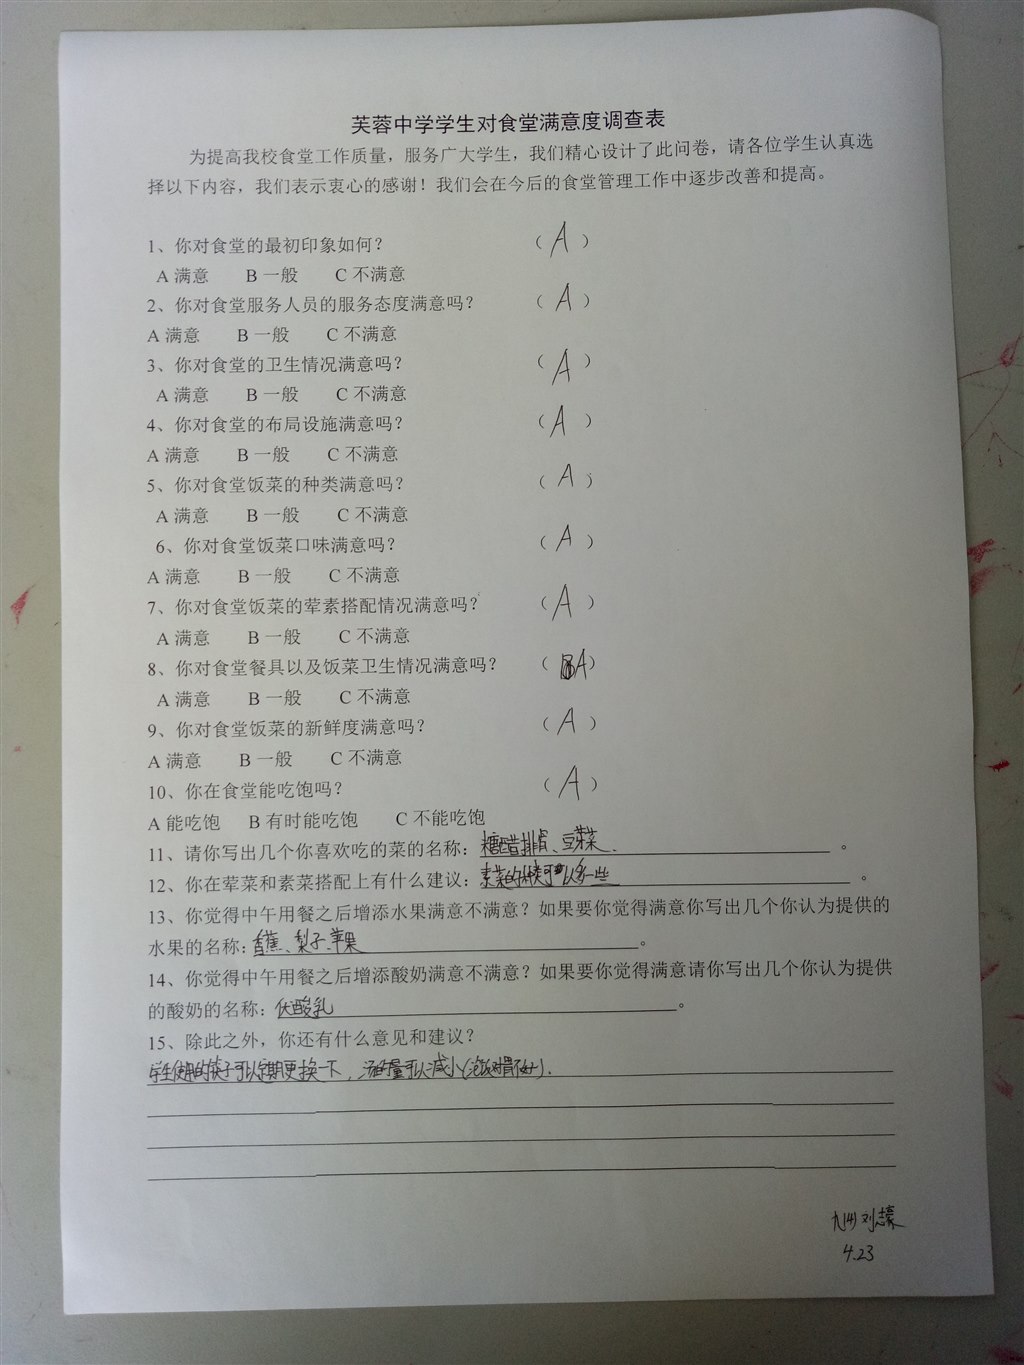 芙蓉中学学生对食堂满意度调查表
为提高我校食堂工作质量，服务广大学生，我们精心设计了此问卷，请各位学生认真选
择以下内容，我们表示衷心的感谢！我们会在今后的食堂管理工作中逐步改善和提高。
1、你对食堂的最初印象如何？ （ A ）
A 满意 B 一般 C 不满意
2、你对食堂服务人员的服务态度满意吗？ （ A ）
A 满意 B 一般 C 不满意
3、你对食堂的卫生情况满意吗？ （ A ）
A 满意 B 一般 C 不满意
4、你对食堂的布局设施满意吗？ （ A ）
A 满意 B 一般 C 不满意
5、你对食堂饭菜的种类满意吗？ （ A ）
A 满意 B 一般 C 不满意
6、你对食堂饭菜口味满意吗？ （ A ）
A 满意 B 一般 C 不满意
7、你对食堂饭菜的荤素搭配情况满意吗？ （ A ）
A 满意 B 一般 C 不满意
8、你对食堂餐具以及饭菜卫生情况满意吗？ （ A ）
A 满意 B 一般 C 不满意
9、你对食堂饭菜的新鲜度满意吗？ （ A ）
A 满意 B 一般 C 不满意
10、你在食堂能吃饱吗？ （ A ）
A 能吃饱 B 有时能吃饱 C 不能吃饱
11、请你写出几个你喜欢吃的菜的名称：糖醋排骨、豆芽菜. 。
12、你在荤菜和素菜搭配上有什么建议：素菜的 可以多一些 。
13、你觉得中午用餐之后增添水果满意不满意？如果要你觉得满意你写出几个你认为提供的
水果的名称：香蕉、梨子、苹果 。
14、你觉得中午用餐之后增添酸奶满意不满意？如果要你觉得满意请你写出几个你认为提供
的酸奶的名称：优酸乳 。
15、除此之外，你还有什么意见和建议？
学生使用的筷子可以定期更换一下，汤的量可以减小(泡饭对胃不好).
九(4) 刘志豪
4.23